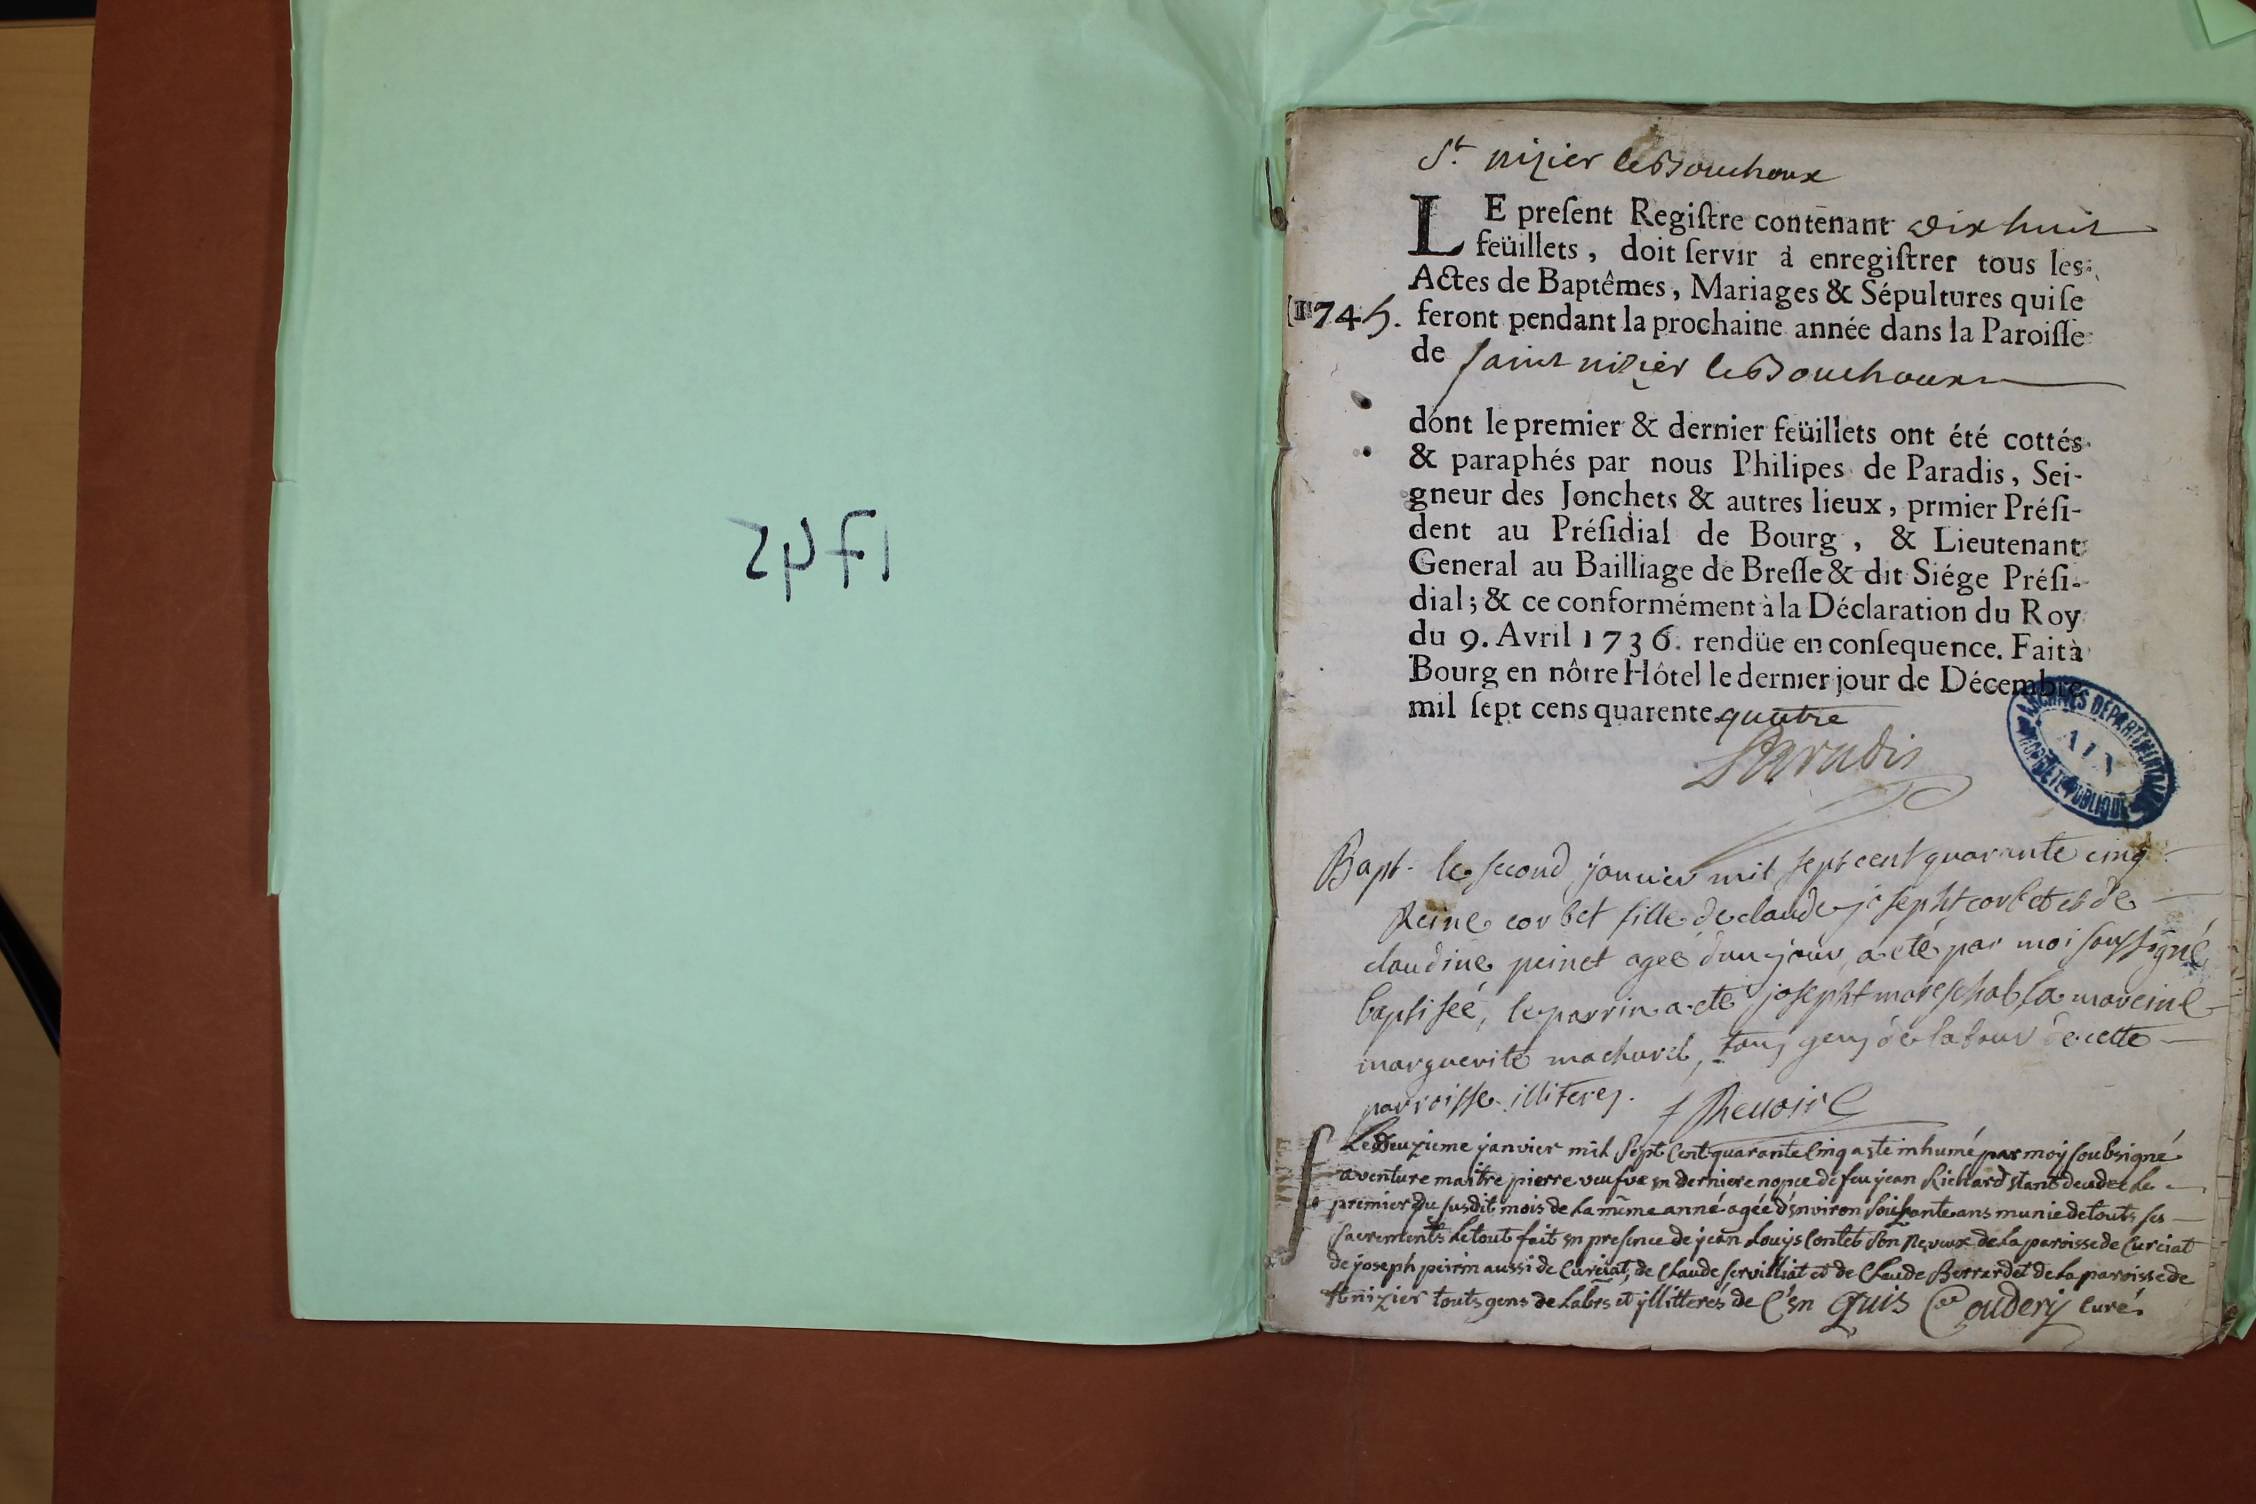 1745
St. nizier le Bouchoux
LE present Registre contenant dix huit
feüillets, doit servir à enregistrer tous les
Actes de Baptêmes, Mariages & Sépultures qui se
1745. feront pendant la prochaine année dans la Paroisse
de saint nizier le Bouchoux
dont le premier & dernier feüillets ont été cottés
& paraphés par nous Philipes de Paradis, Sei-
gneur des Jonchets & autres lieux, prmier Prési-
dent au Présidial de Bourg, & Lieutenant
General au Bailliage de Bresse & dit Siége Prési-
dial; & ce conformément à la Déclaration du Roy
du 9. Avril 1736. rendüe en consequence. Fait à
Bourg en nôtre Hôtel le dernier jour de Décembre
mil sept cens quarente quatre
Paradis
ARCHIVES DEPARTEMENTALES
AIN
PROPRIETE PUBLIQUE
Bapt. le second janvier mil sept cent quarante cinq
Reine corbet fille de claude josepht corbet et de
claudine peinet agée d'un jour, a eté par moi soussigné
baptisée, le parrin a eté josepht mareschal, la mareine
marguerite machurel, tous gens de labour de cette
parroisse illiteres. Renoire
Le Deuzieme janvier mil sept Cent quarante Cinq a eté inhumé par moy soubsigné
aventure maitre pierre veufve en derniere nopce de feu jean Richard etant decedee le
premier du susdit mois de la même anné agée d'environ soixante ans munie de touts ses
sacrements le tout fait en presence de jean Louys Contet son neveux de la paroisse de Curciat
de joseph peirin aussi de Curciat, de Claude servilliat et de Claude Berrardet de la paroisse de
st nizier touts gens de labrs et yllitteres de C'en quis Couderÿ Curé.